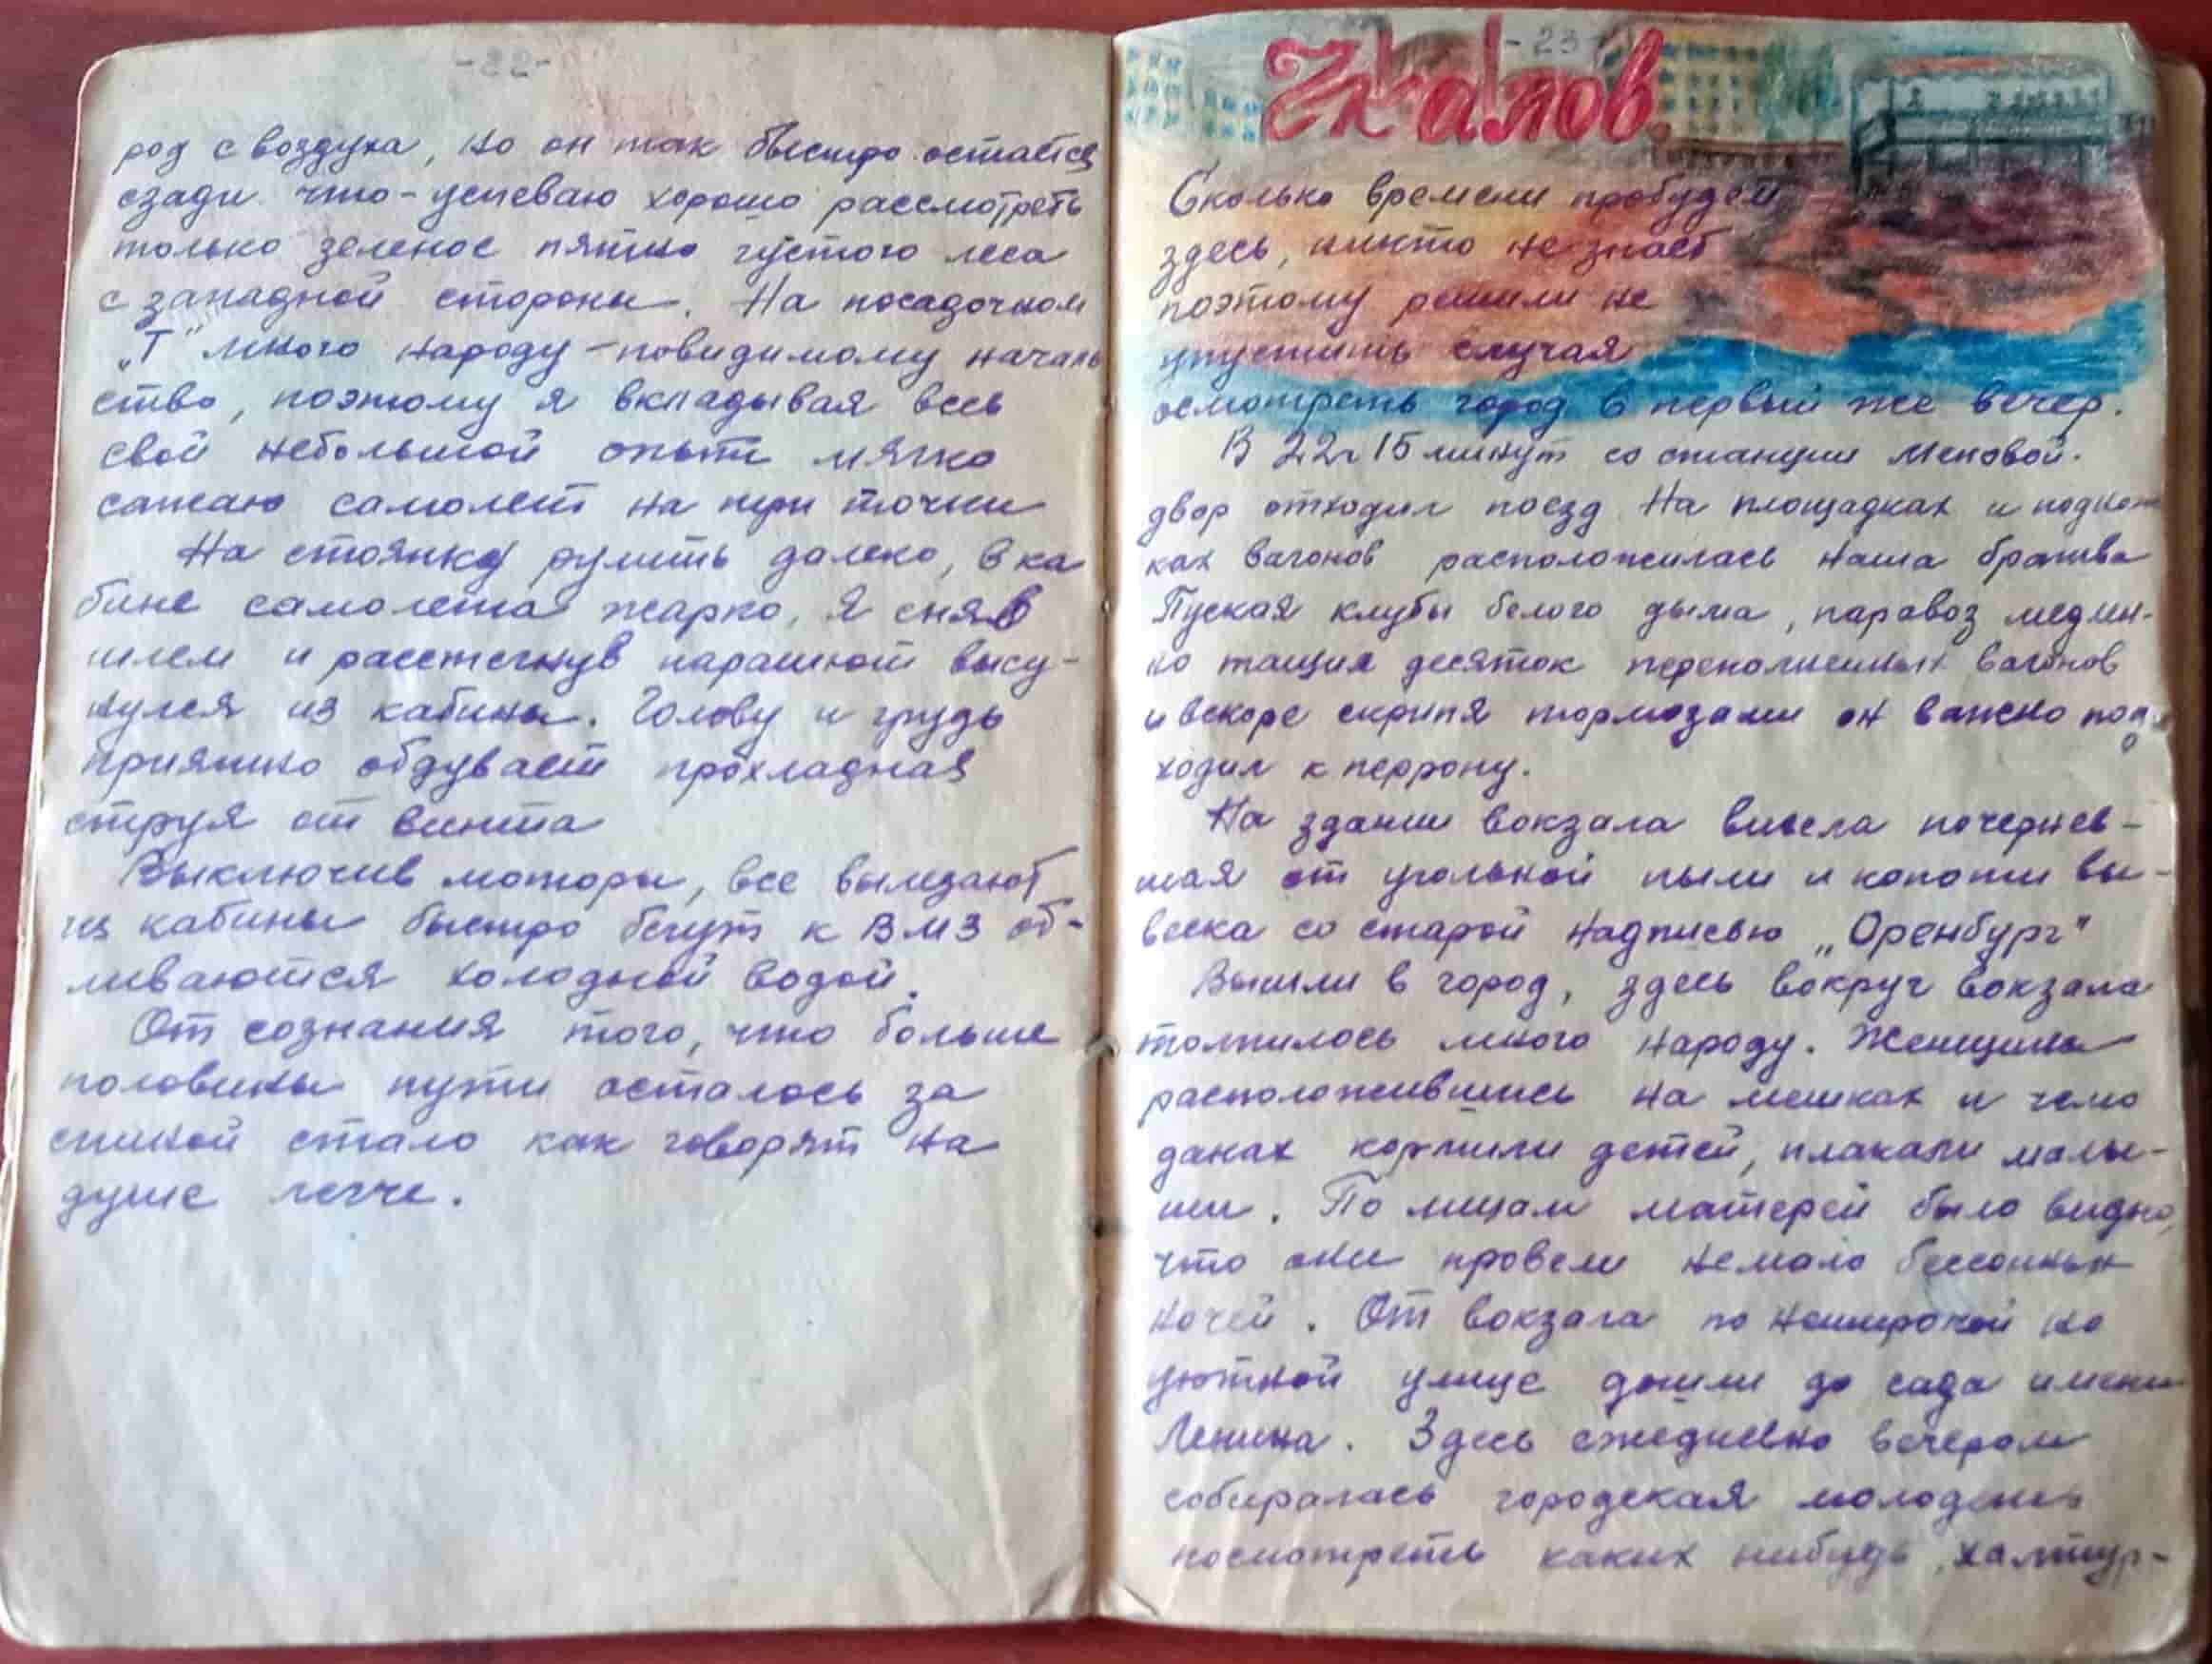 -22-
род с воздуха, но он так быстро остается
сзади что-успеваю хорошо рассмотреть
только зеленое пятно густого леса
с западной стороны. На посадочном
„Т" много народу-повидимому началь
ство, поэтому я вкладывая весь
свой небольшой опыт мягко
сажаю самолет на три точки
На стоянку рулить далеко, в ка
бине самолета жарко, я сняв
шлем и расстегнув парашют высу-
нулся из кабины. Голову и грудь
приятно обдувает прохладная
струя от винта
Выключив моторы, все вылезают
из кабины быстро бегут к ВМЗ об-
ливаются холодной водой.
От сознания того, что больше
половины пути осталось за
спиной стало как говорят на
душе легче.
-23-
Чкалов
Сколько времени пробудем
здесь, никто не знает
поэтому решили не
упустить случая
осмотреть город в первый же вечер.
В 22ч 15 минут со станции Меновой-
двор отходил поезд. На площадках и поднож
ках вагонов расположилась наша братва
Пуская клубы белого дыма, паровоз медлен-
но тащил десяток переполненных вагонов
и вскоре скрипя тормозами он важно под
ходил к перрону.
На здании вокзала висела почернев-
шая от угольной пыли и копоти вы-
веска со старой надписью „Оренбург"
Вышли в город, здесь вокруг вокзала
толпилось много народу. Женщины
расположившись на мешках и чемо
данах кормили детей, плакали малы-
ши. По лицам матерей было видно,
что они провели немало бессонных
ночей. От вокзала по неширокой но
уютной улице дошли до сада имени
Ленина. Здесь ежедневно вечером
собиралась городская молодежь
посмотреть каких нибудь „халтур-